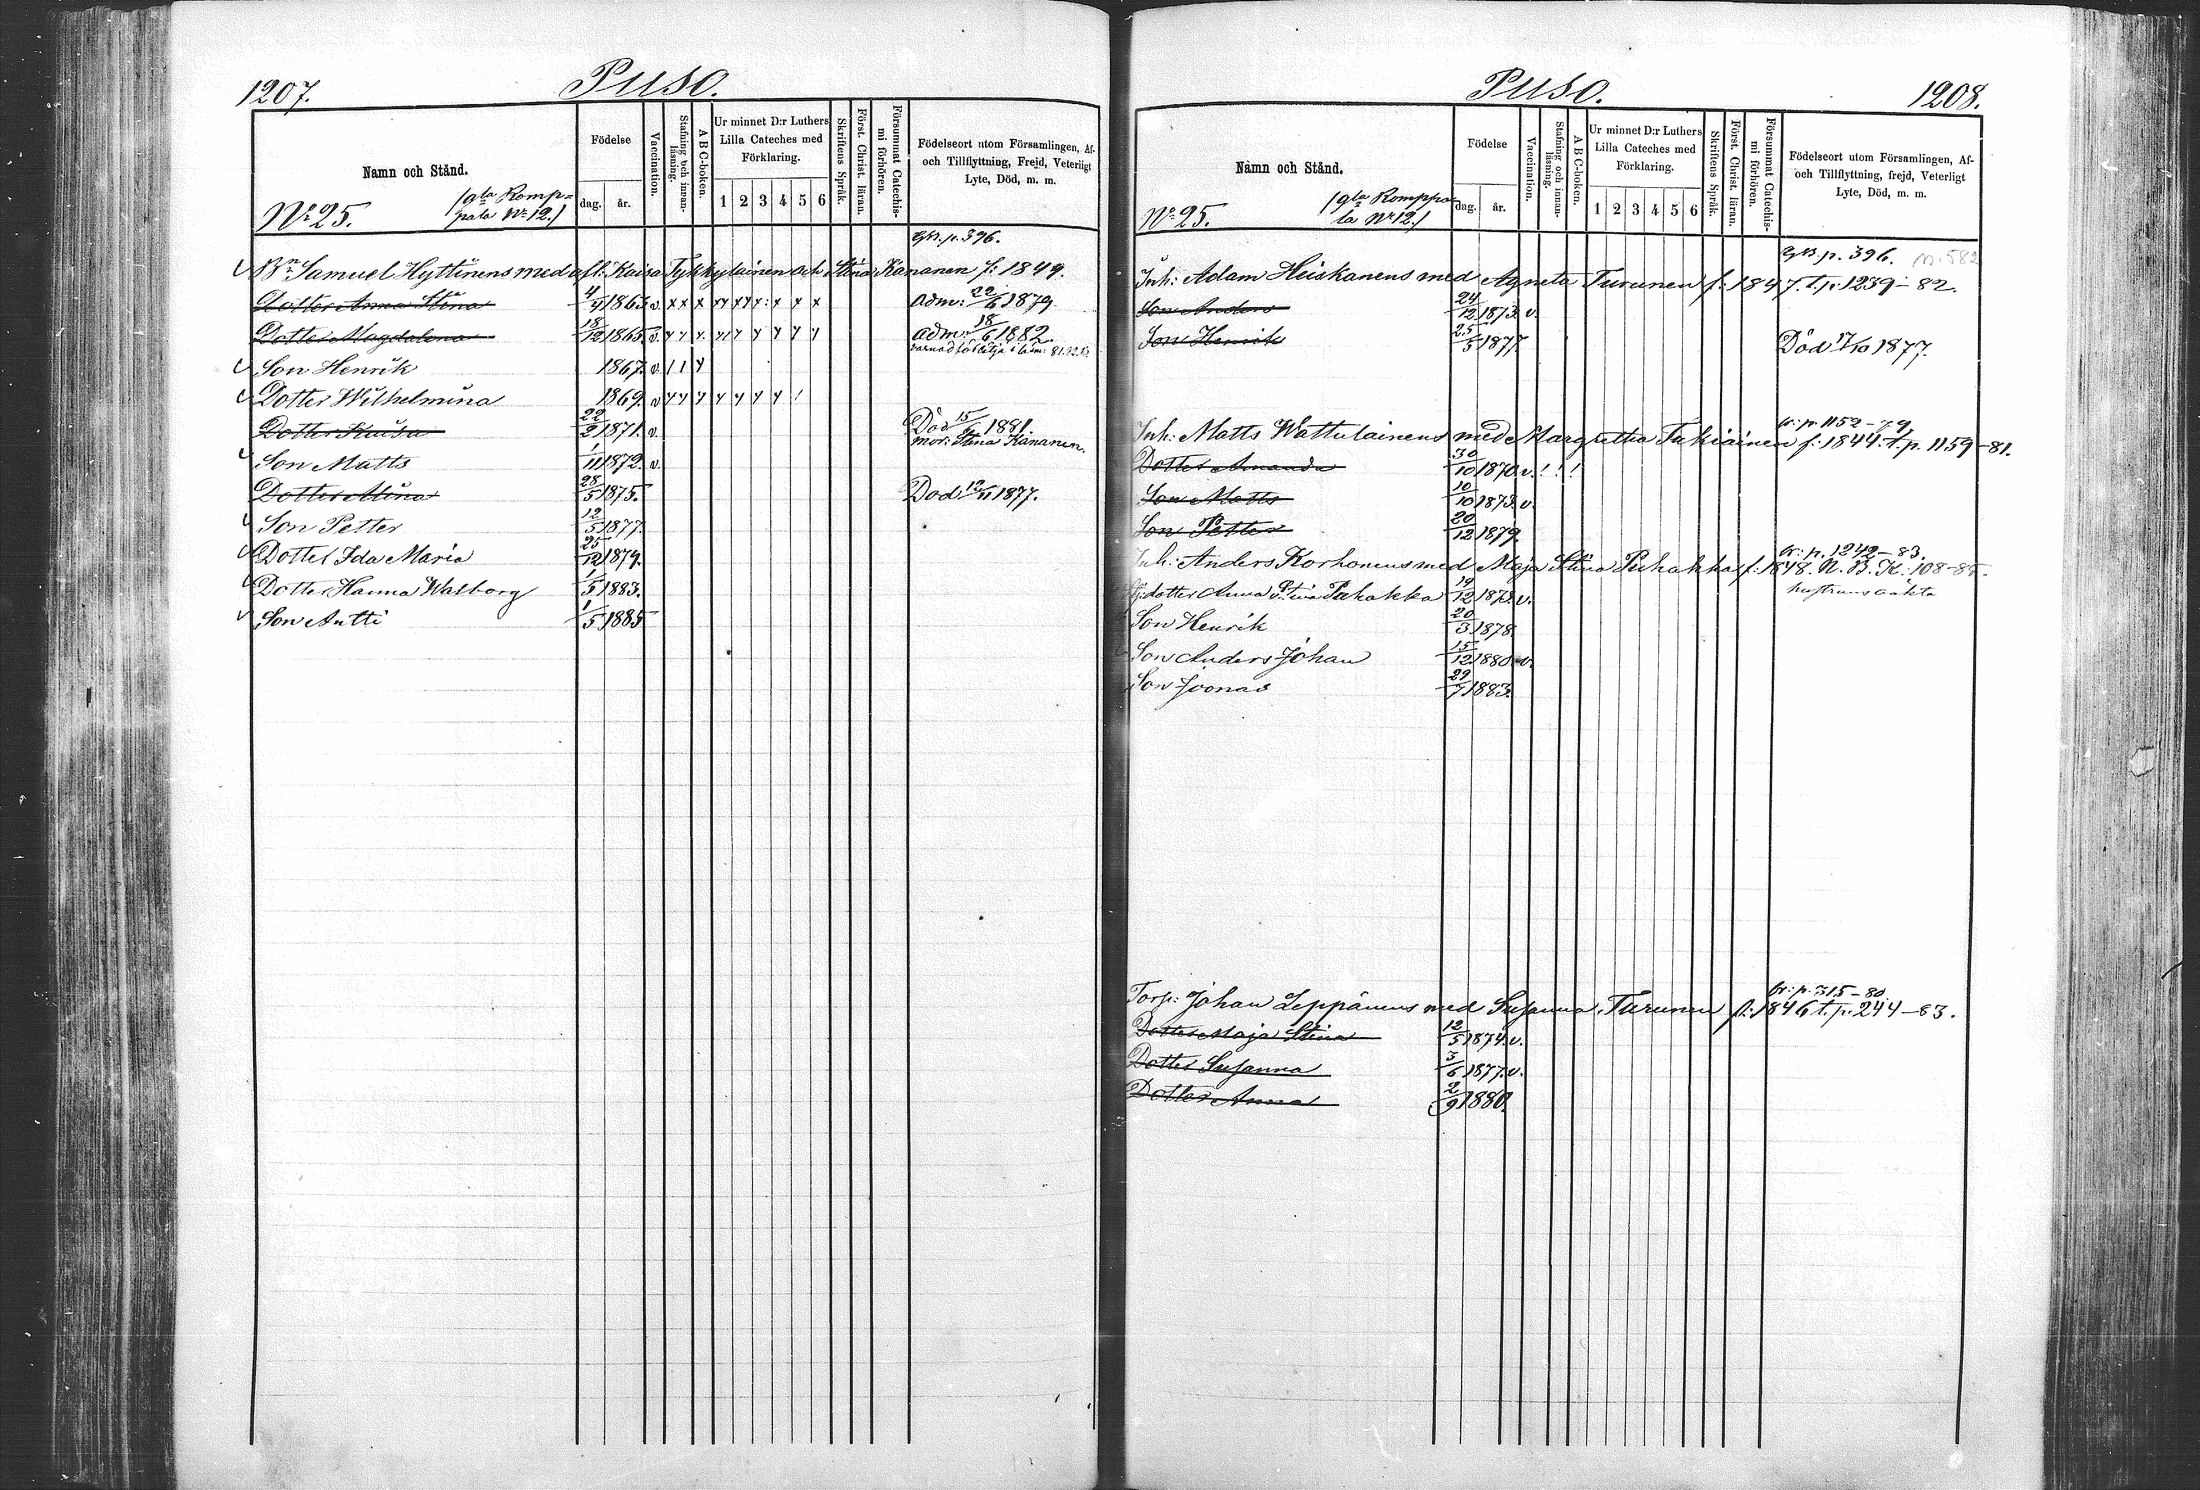 1207.
Puso.
Namn och Stånd.
Födelse
dag.
år.
Vaccination.
Stafning och innan-läsning.
A B C-boken.
Ur minnet D:r Luthers Lilla Cateches med Förklaring.
1 2 3 4 5 6
Skriftens Språk.
Först. Christ. läran.
Försummat Catechis-mi förhören.
Födelseort utom Församlingen, Af-
och Tillflyttning, Frejd, Veterligt
Lyte, Död, m. m.
No 25. /gla Romp=
pala No 12./
gB. p. 396.
Bn Samuel Hyttinens med afl: Kaisa Tykkyläinen och Stina Känänen f: 1849.
Dotter Anna Stina 4/9 1863. v. x x x x x x x x x Adm: 22/6 1879
Dotter Magdalena 18/12 1865. v. Adm: 18/6 1882.
Son Henrik 1867. v.
Dotter Wilhelmina 1869. v
Dotter Kaisa 22/2 1871. v. Död 15/6 1881.
mor: Stina Känänen.
Son Matts 1/11 1872. v.
Dotter Stina 28/5 1875. Död 12/11 1877.
Son Petter 12/5 1877.
Dotter Ida Maria 25/12 1879.
Dotter Hanna Walborg 1/5 1883.
Son Antti 1/5 1885
Puso.
1208.
Namn och Stånd.
Födelse
dag.
år.
Vaccination.
Stafning och innan-läsning.
A B C-boken.
Ur minnet D:r Luthers Lilla Cateches med Förklaring.
1 2 3 4 5 6
Skriftens Språk.
Först. Christ. läran.
Försummat Catechis-mi förhören.
Födelseort utom Församlingen, Af-
och Tillflyttning, frejd, Veterligt
Lyte, Död, m. m.
No 25. /gla Romppa=
la No 12./
gB. p. 396. p. 582
Inh: Adam Heiskanens med Agneta Turunen f: 1847. t. p. 1239-82.
Son Anders 24/12 1873. v.
Son Henrik 25/5 1877. Död 17/10 1877.
fr: p. 1152-79.
Inh: Matts Wattulainens med Margretha Tukiainen f: 1844. t. p. 1159-81.
Dotter Amanda 30/10 1870. v. ! ! !
Son Matts 10/10 1873. v.
Son Petter 20/12 1879.
fr: p. 1242-83.
Inh: Anders Korhonens med Maja Stina Puhakka f: 1848. N. B. K. 108-85.
dotter Anna Stina Puhakka 19/12 1873. v. hustruns oäkta
Son Henrik 20/3 1878.
Son Anders Johan 15/12 1880. v.
Son Joonas 29/7 1883.
fr: p. 315-80.
Torp: Johan Leppänens med Susanna Turunen f: 1846 t. p. 244-83.
Dotter Maja Stina 12/5 1874. v.
Dotter Susanna 3/6 1877. v.
Dotter Anna 2/9 1880.